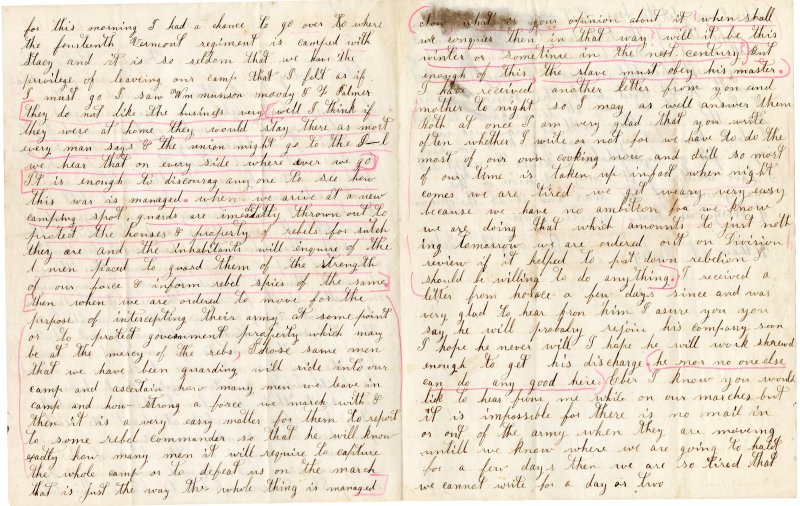 for this morning I had a chance to go over to where
the fourteenth Vermont regiment is camped with
Stacy and it is so seldom that we have the
privilege of leaveing our camp that I felt as if
I must go I saw Wm munson moody & F Palmer
they do not like the business very well I think if
they were at home they would stay there as most
every man says & the union might go to the I—l
we hear that on every side where ever we go
It is enough to discourag any one to see how
this war is managed. when we arrive at a new
camping spot, guards are imeadatly thrown out to
protect the houses & property of rebels for sutch
they are and the inhabitants will enquire of the
men placed to guard them of the strength
of our force & inform rebel spies of the same.
then when we are ordered to move for the
purpose of intercepting their army at some point
or to protect government property which may
be at the mercy of the rebs, those same men
that we have been guarding will ride into our
camp and ascertain how many men we leave in
camp and how strong a force we march with &
then it is a very easy matter for them to report
to some rebel commander so that he will know
exactly how many men it will require to capture
the whole camp or to defeat us on the march
that is just the way the whole thing is managed
Now what is your opinion about it when shall
we conquer then in that way will it be this
winter or sometime in the next century. But
enough of this the slave must obey his master.
I have received another letter from you and
mother to night so I may as well answer them
both at once I am very glad that you write
often whether I write or not for we have to do the
most of our own cooking now and drill so most
of our time is taken up infact when night
comes we are tired we get weary very easy
because we have no ambition for we know
we are doing that which amounts to just noth
ing tomorrow we are ordered out on Division
review if it helped to put down rebelion I
should be willing to do anything. I received a
letter from horace a few days since and was
very glad to hear from him I assure you you
say he will probably rejoin his company soon
I hope he never will I hope he will work shrewd
enough to get his discharge he nor no one else
can do any good here. I know you would
like to hear from me while on our marches but
it is impossible for there is no mail in
or out of the army when they are moveing
untill we know where we are going to halt
for a few days then we are so tired that
we cannot write for a day or two